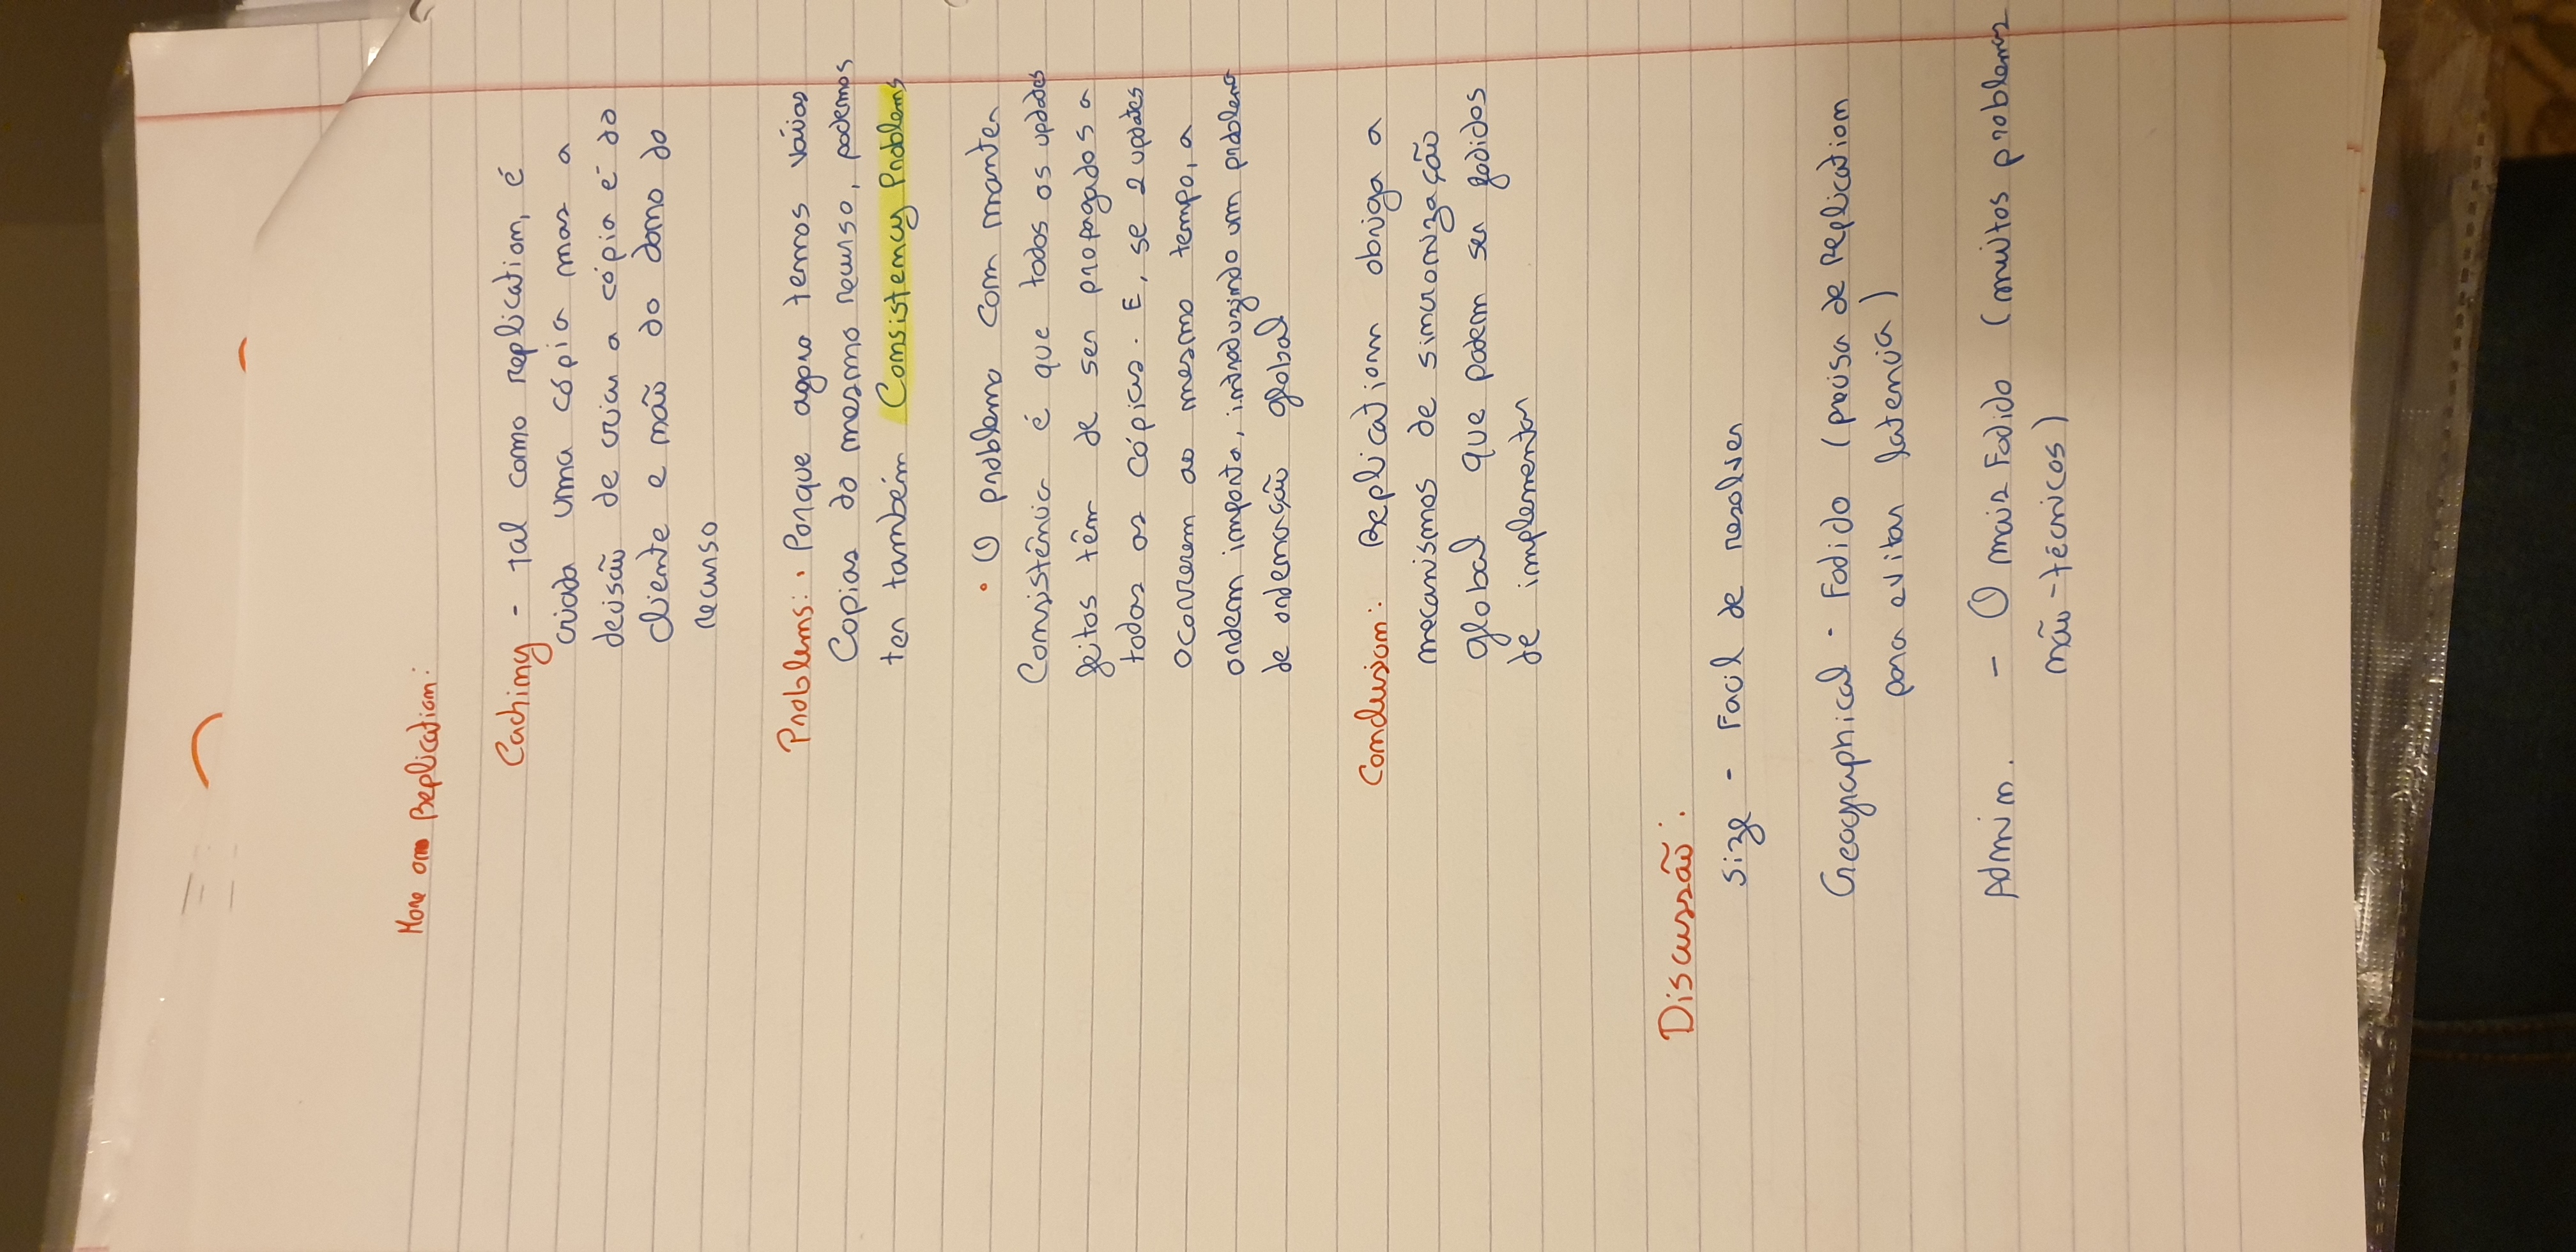 More on Replication:
Caching - Tal como replication, é
criada uma cópia mas a
decisão de criar a cópia é do
cliente e não do dono do
recurso
Problems: • Porque agora temos várias
Copias do mesmo recurso, podemos
ter também Consistency Problems
• O problema com manter
Consistência é que todos os updates
feitos têm de ser propagados a
todas as cópias. E, se 2 updates
ocorrerem ao mesmo tempo, a
ordem importa, introduzindo um problema
de ordenação global
Conclusion: Replication obriga a
mecanismos de sincronização
global que podem ser fodidos
de implementar
Discussão:
Size - Facil de resolver
Geographical - Fodido (precisa de Replication
para evitar latencia)
Admin. - O mais Fodido (muitos problemas
não-técnicos)